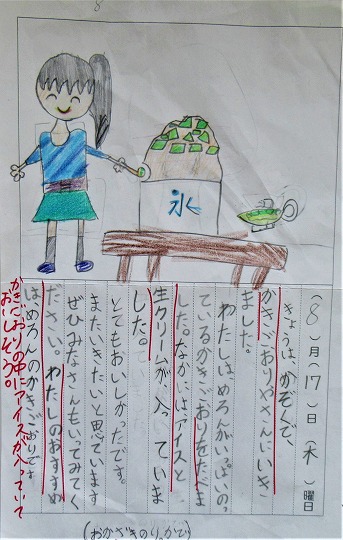 8
氷
(8)月(17)日(木)曜日
きょうは、かぞくで、
かきごおりやさんにいき
ました。
わたしはめろんがいっぱいのっ
ているかきごおりをたべま
した。なかには、アイスと
生クリームが入っていま
した。
とてもおいしかったです。
またいきたいと思ています
ぜひみなさんもいってみてく
ださい。わたしのおすすめ
は、めろんのかきごおりです
かきごおりの中にアイスが入っていて
おいしそう。